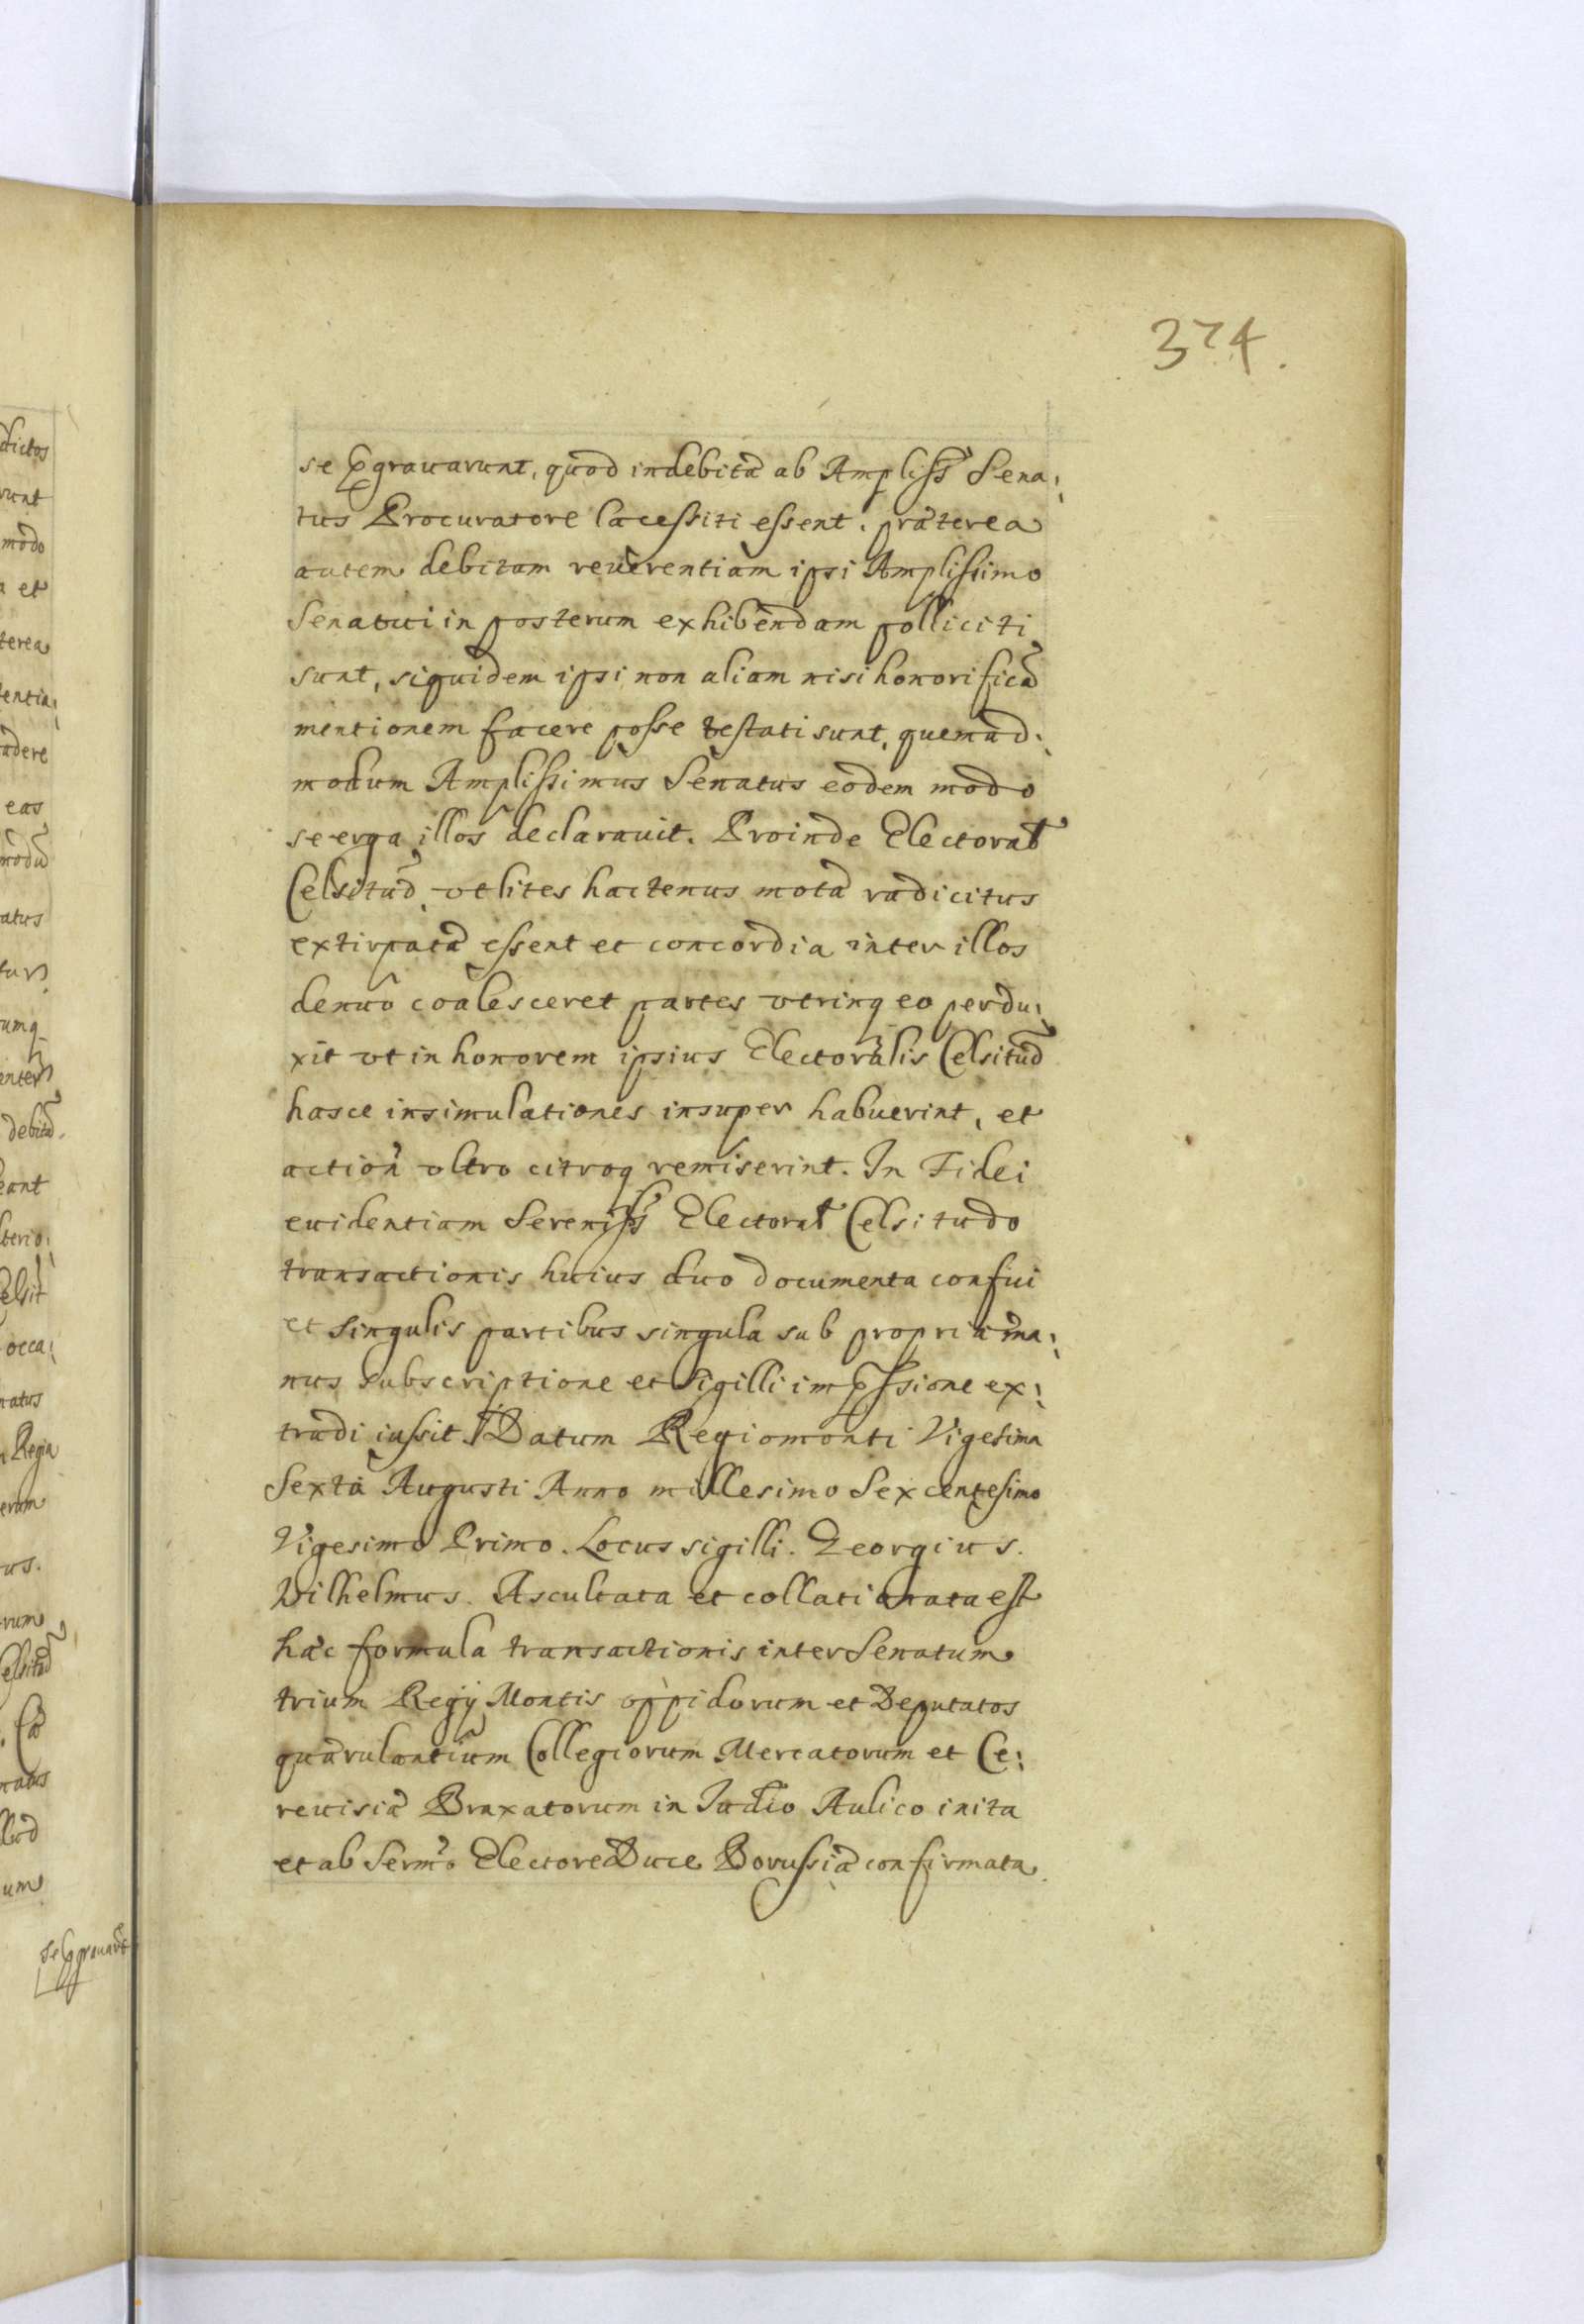 374.
se ꝑgrauarunt, quod indebitã ab Ampliss̃ Sena:
tus Procuratore lacessiti essent. præterea
autem debitam reuerentiam ipsi Amplissimo
Senatui in posterum exhibendam polliciti
sunt, siquidem ipsi non aliam nisi honorificã
mentionem facere posse testati sunt, quemad:
modum Amplissimus Senatus eodem modo
se erga illos declarauit. Proinde Electoral̃
Celsitud̃, vt lites hactenus motæ radicitus
extirpatæ essent et concordia inter illos
denuo coalesceret partes vtrinq eo perdu:
xit vt in honorem ipsius Electoralis Celsitud̃
hasce insimulationes insuper habuerint, et
action̉ vltro citroq remiserint. In Fidei
euidentiam Sereniss̃ Electoral̃ Celsitudo
transactionis huius duo documenta confici
et singulis partibus singula sub propria ma:
nus subscriptione et sigilli imp̃ssione ex:
tradi iussit. Datum Regiomonti Vigesima
Sexta Augusti Anno millesimo Sexcentesimo
Vigesimo Primo. Locus sigilli. Georgius.
Wilhelmus. Ascultata et collationata est
hæc formula transactionis inter Senatum
trium Regij Montis oppidorum et Deputatos
quærulantium Collegiorum Mercatorum et Ce:
reuisiæ Braxatorum in Iudicio Aulico inita
et ab Sermo Electore Duce Borussiæ confirmata
dictos
runt
modo
et
terea
entia:
adere
eas
modũ
atus
tur
umq
enter
debitã
eant
terio:
elsit
occa:
natus
Regia
erum
us.
rum
elsitud̃
natus
um
se ꝑgrauarũt